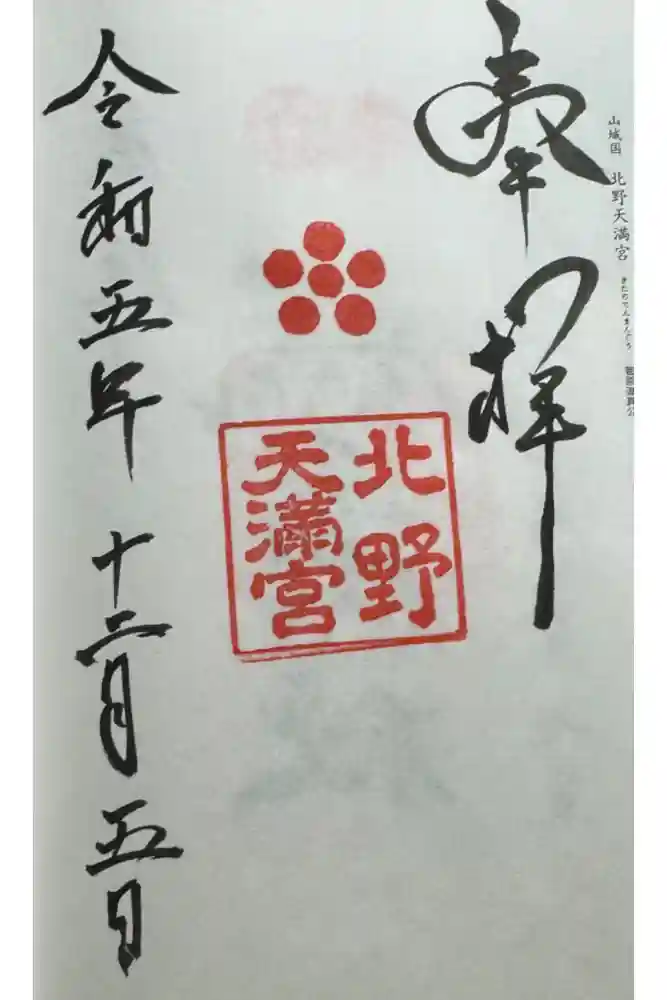 山城国 北野天満宮 きたのてんまんぐう 菅原道真公
奉拝
北野
天満宮
令和五年 十二月 五日